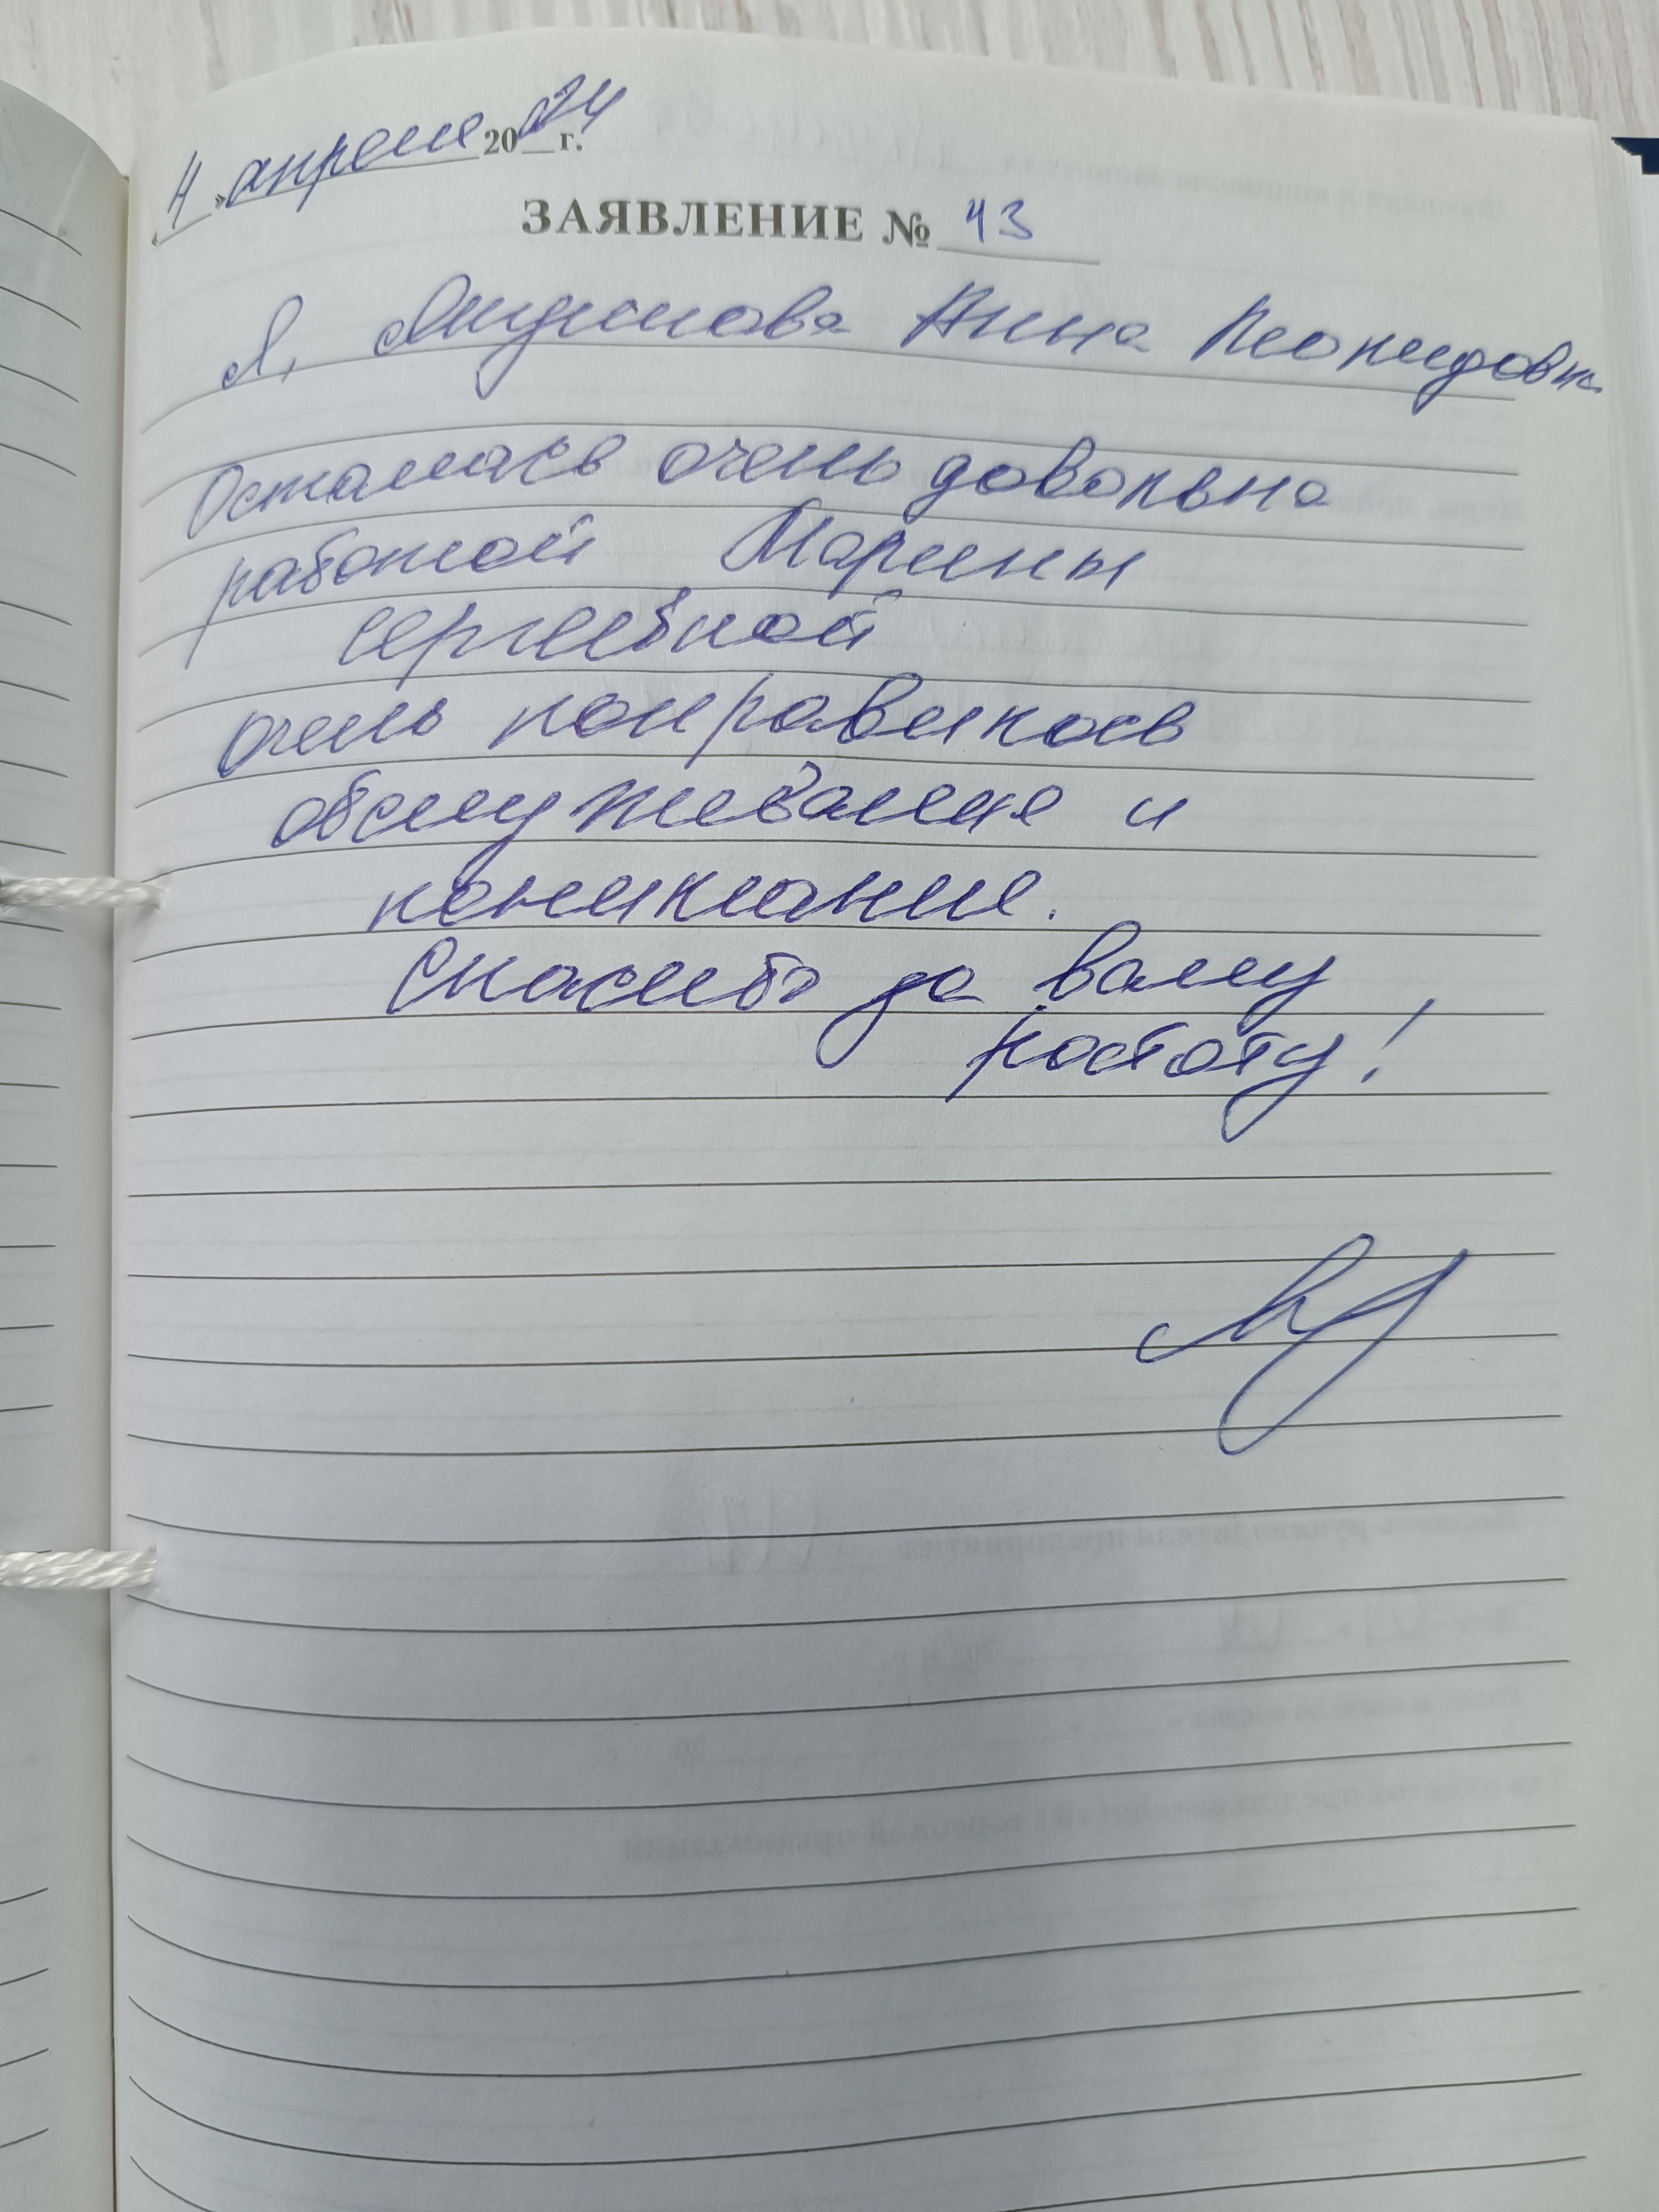 «4» апреля 2024 г.
ЗАЯВЛЕНИЕ № 43
Я, Анна Леонидовна
Осталась очень довольна
работой Марины
Сергеевной
очень понравилось
обслуживание и
понимание.
Спасибо за вашу
работу!